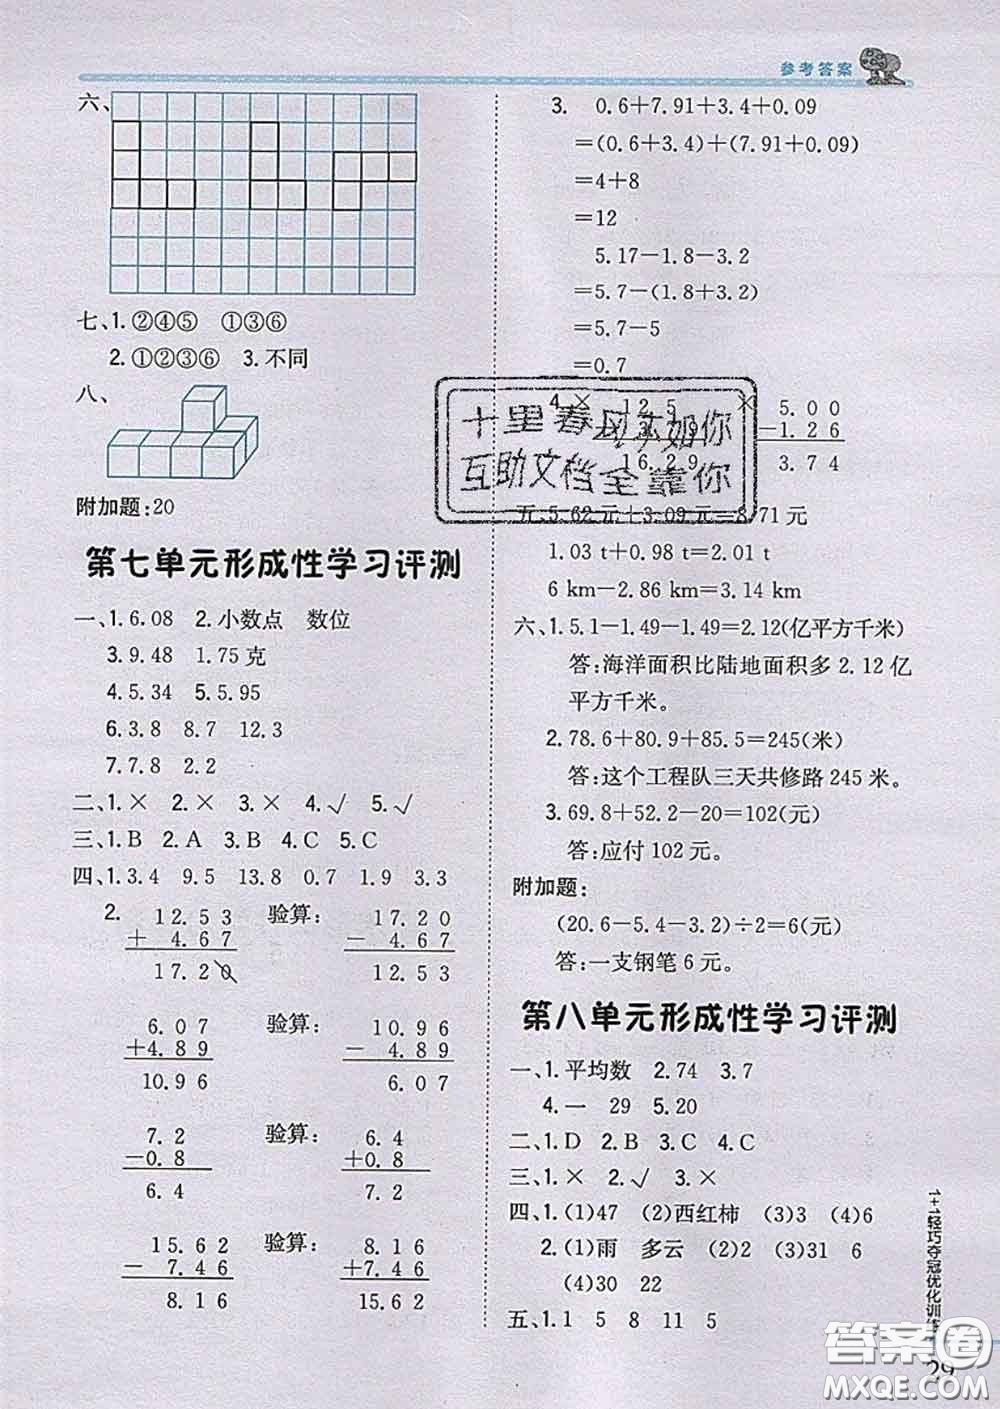 参考答案
六、
七、1. ②④⑤ ①③⑥
2. ①②③⑥ 3. 不同
八、
附加题:20
第七单元形成性学习评测
一、1. 6.08 2. 小数点 数位
3. 9.48 1.75 克
4. 5.34 5. 5.95
6. 3.8 8.7 12.3
7. 7.8 2.2
二、1. × 2. × 3. × 4. √ 5. √
三、1. B 2. A 3. B 4. C 5. C
四、1. 3.4 9.5 13.8 0.7 1.9 3.3
2. 12.53 验算: 17.20
+ 4.67 - 4.67
17.20 12.53
6.07 验算: 10.96
+4.89 - 4.89
10.96 6.07
7.2 验算: 6.4
-0.8 +0.8
6.4 7.2
15.62 验算: 8.16
- 7.46 +7.46
8.16 15.62
3. 0.6+7.91+3.4+0.09
=(0.6+3.4)+(7.91+0.09)
=4+8
=12
5.17-1.8-3.2
=5.7-(1.8+3.2)
=5.7-5
=0.7
4. × 12.5 × 5.00
3.79 -1.26
16.29 3.74
十里春风不如你
互助文档全靠你
五、5.62元+3.09元=8.71元
1.03 t+0.98 t=2.01 t
6 km-2.86 km=3.14 km
六、1. 5.1-1.49-1.49=2.12(亿平方千米)
答:海洋面积比陆地面积多 2.12 亿
平方千米。
2. 78.6+80.9+85.5=245(米)
答:这个工程队三天共修路 245 米。
3. 69.8+52.2-20=102(元)
答:应付 102 元。
附加题:
(20.6-5.4-3.2)÷2=6(元)
答:一支钢笔 6 元。
第八单元形成性学习评测
一、1. 平均数 2. 74 3. 7
4. 一 29 5. 20
二、1. D 2. B 3. C 4. C
三、1. × 2. √ 3. ×
四、1. (1)47 (2)西红柿 (3)3 (4)6
2. (1)雨 多云 (2)2 (3)31 6
(4)30 22
五、1. 1 5 8 11 5
1+1轻巧夺冠优化训练
29
答案圈
MXQE.COM